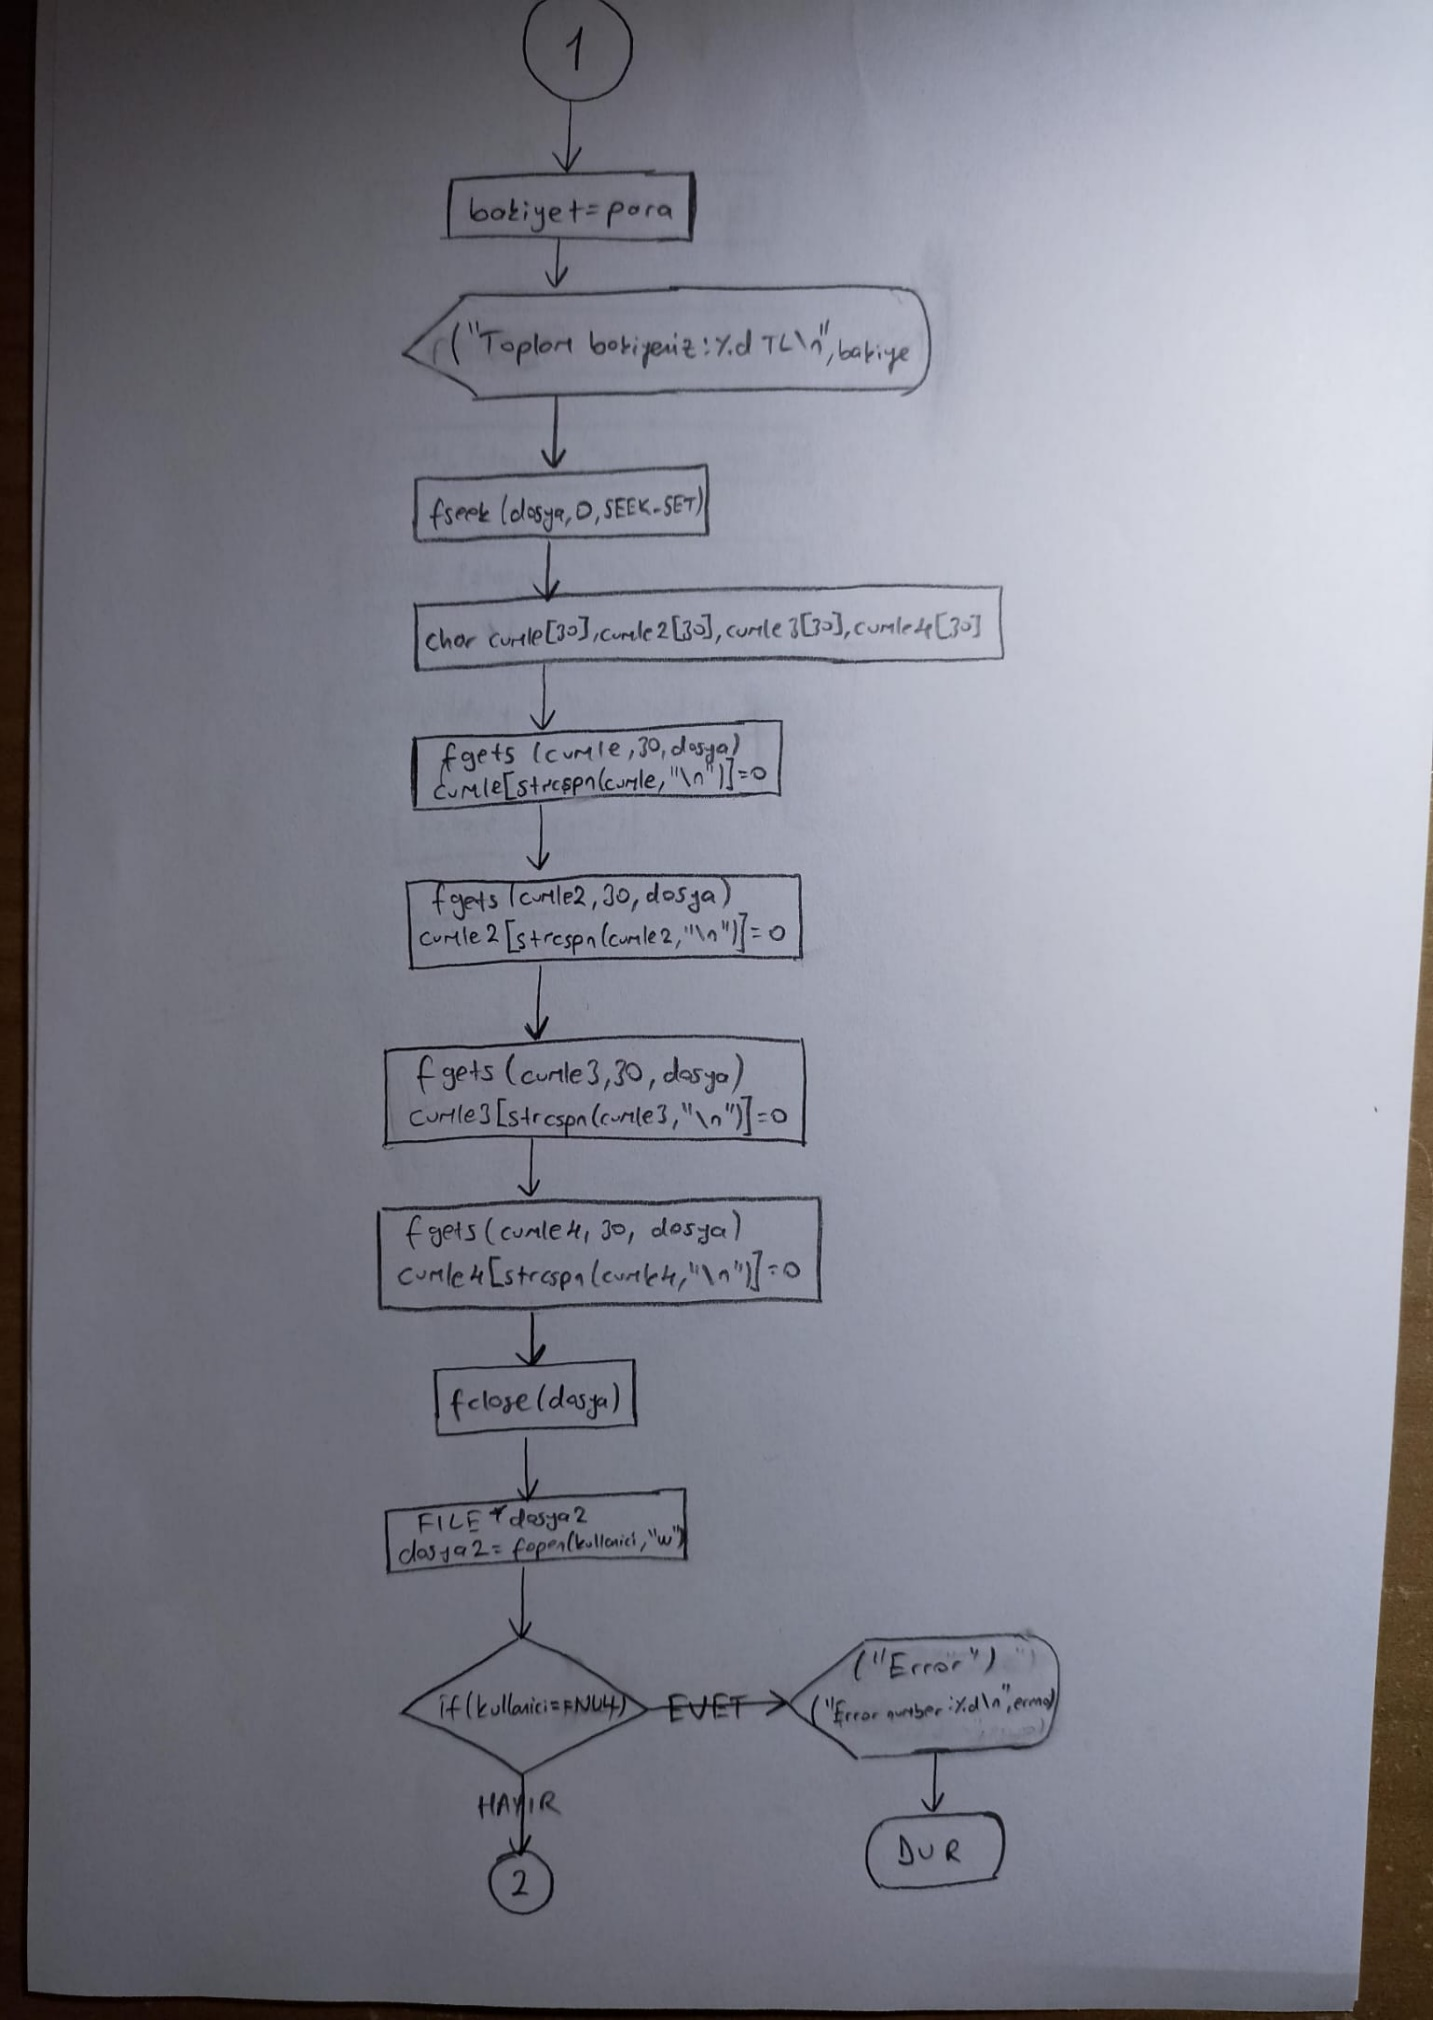 1
bakiye+=para
("Toplam bakiyeniz:%d TL\n",bakiye
fseek(dosya,0,SEEK_SET)
char cumle[30],cumle2[30],cumle3[30],cumle4[30]
fgets(cumle,30,dosya)
cumle[strcspn(cumle,"\n")]=0
fgets(cumle2,30,dosya)
cumle2[strcspn(cumle2,"\n")]=0
fgets(cumle3,30,dosya)
cumle3[strcspn(cumle3,"\n")]=0
fgets(cumle4,30,dosya)
cumle4[strcspn(cumle4,"\n")]=0
fclose(dosya)
FILE *dosya2
dosya2=fopen(kullanici,"w")
if(kullanici==NULL)
EVET
("Error")
("Error number:%d\n",errno)
HAYIR
DUR
2